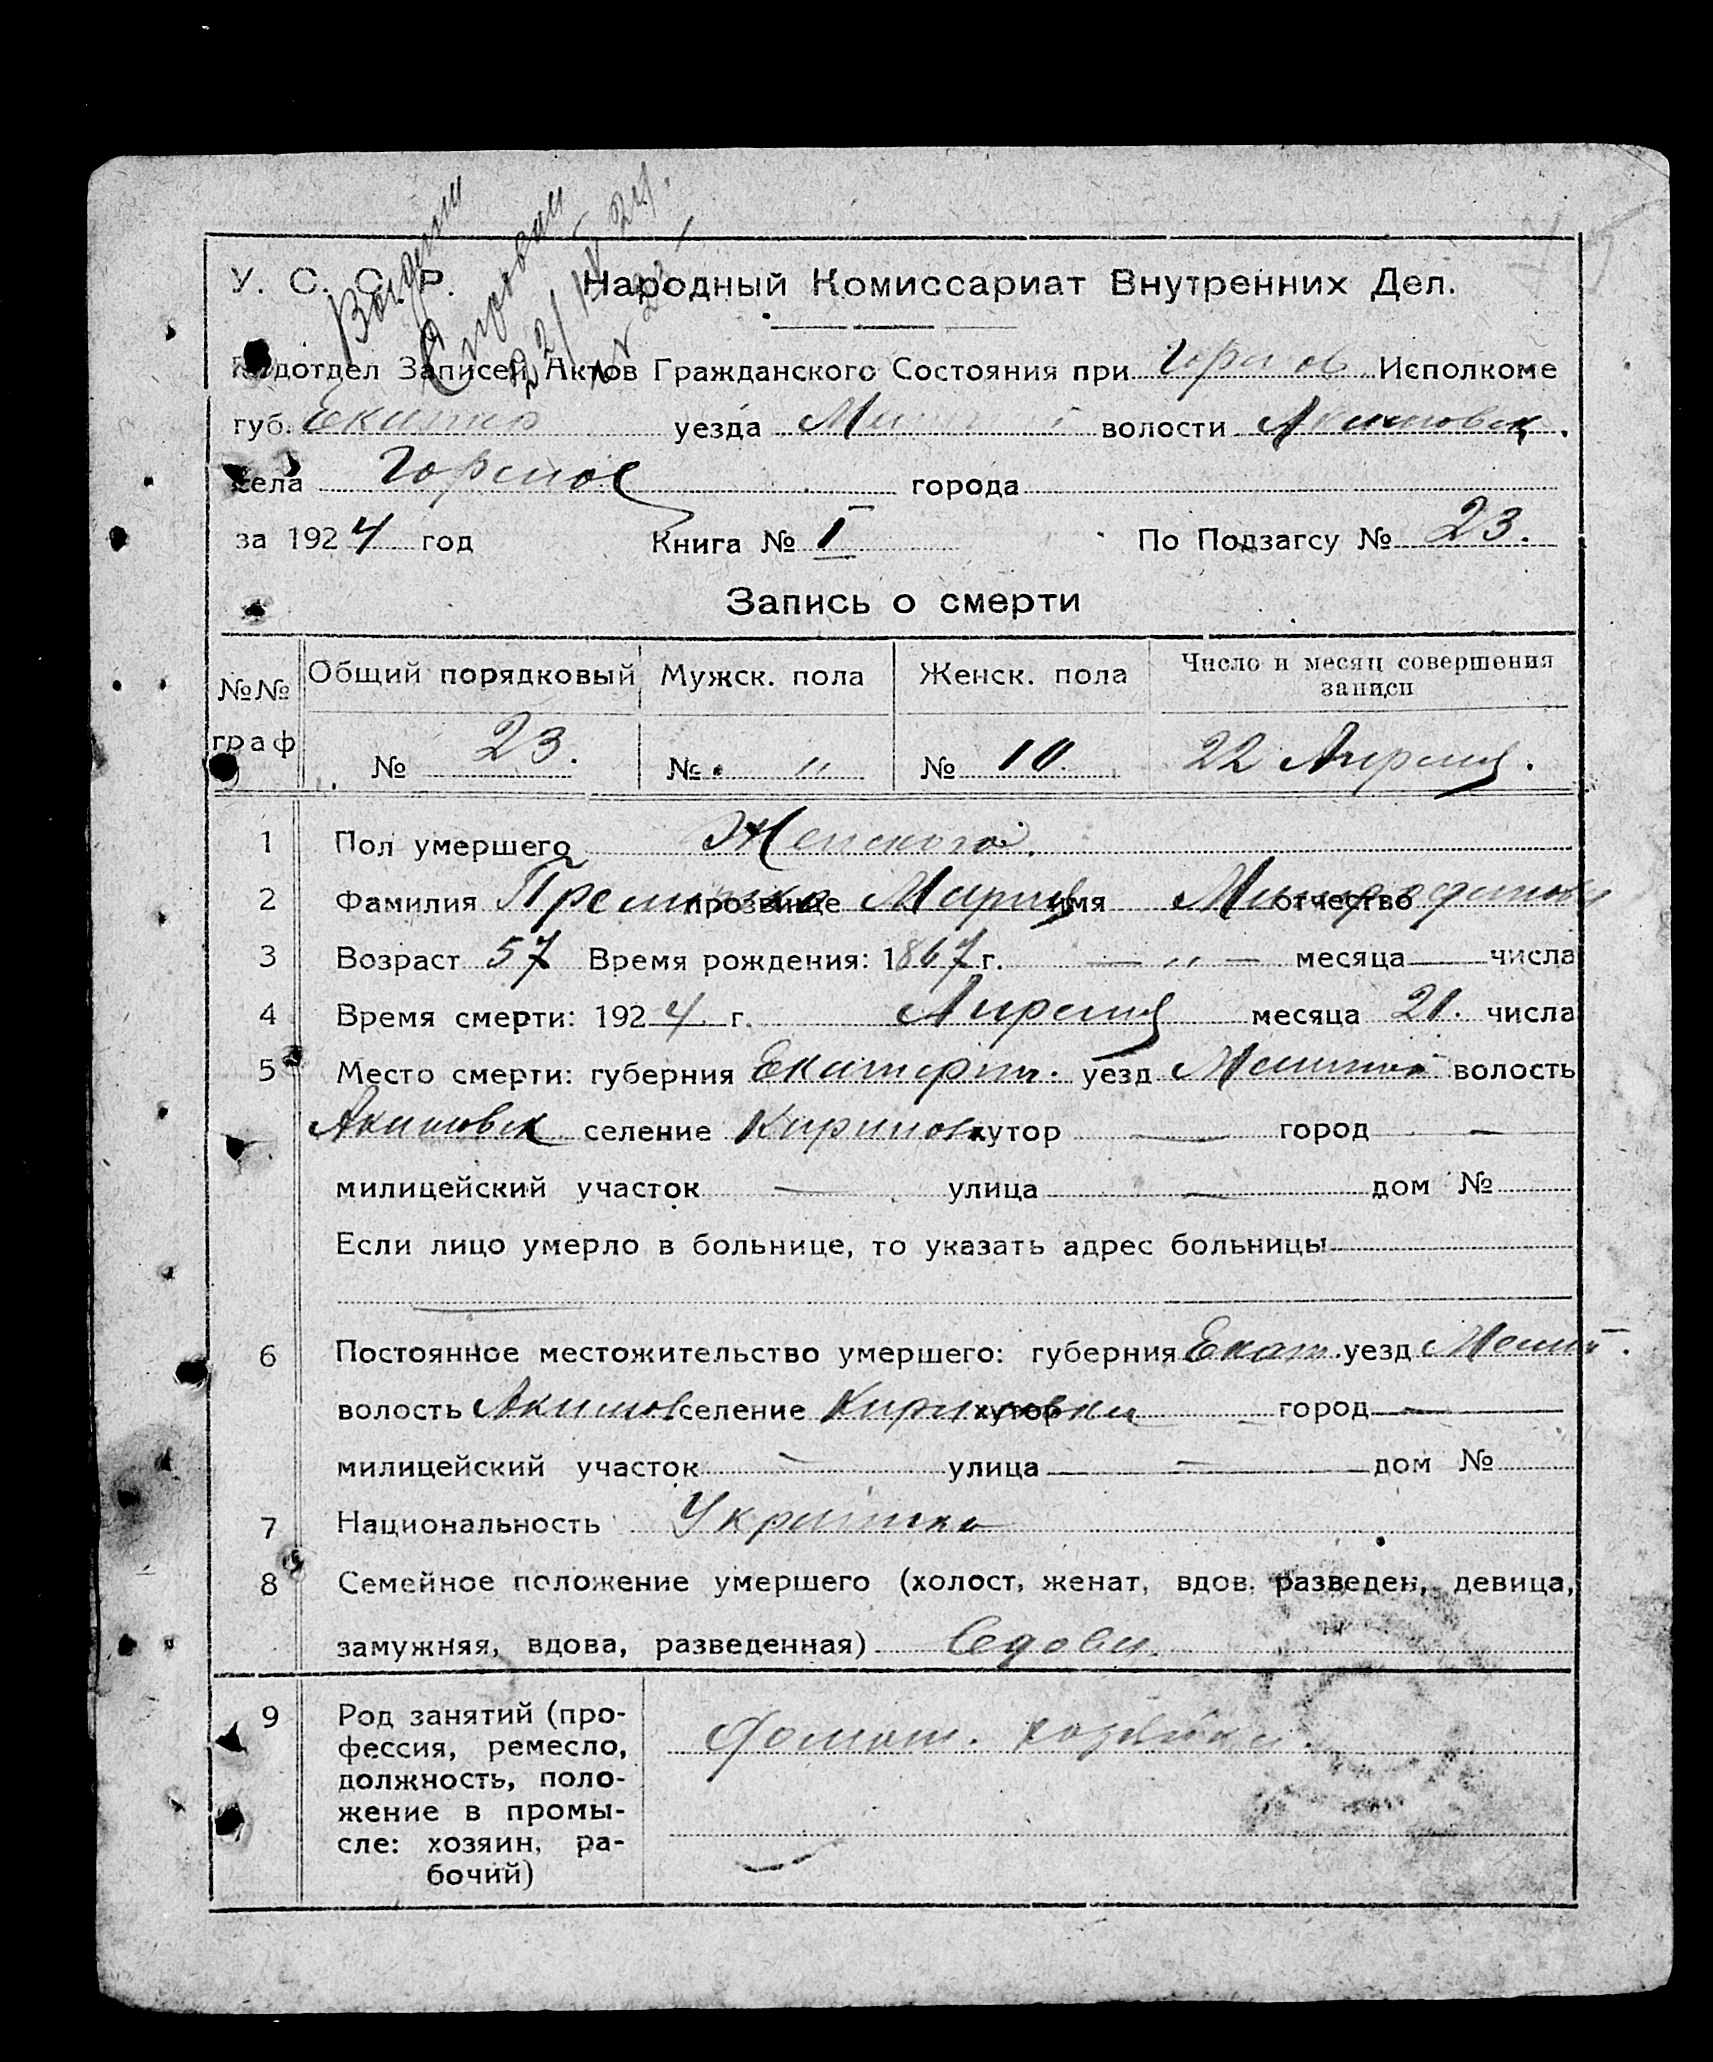 Выдана
Справка
22/IV 24.
У. С. С. Р. Народный Комиссариат Внутренних Дел.
Подотдел Записей Актов Гражданского Состояния при Исполкоме
губ. Екатер уезда волости Акимовск.
села Горелое города
за 1924 год Книга № I По Подзагсу № 23.
Запись о смерти
№№ граф Общий порядковый Мужск. пола Женск. пола Число и месяц совершения записи
№ 23. № " № 10 22 Апреля.
1 Пол умершего Женского.
2 Фамилия прозвище Мария имя отчество
3 Возраст 57 Время рождения: 1867 г. — " — месяца — числа
4 Время смерти: 1924 г. Апреля месяца 21. числа
5 Место смерти: губерния Екатерин. уезд Мелит волость
Акимовск селение хутор — город —
милицейский участок — улица — дом №
Если лицо умерло в больнице, то указать адрес больницы
6 Постоянное местожительство умершего: губерния Екат. уезд Мелит.
волость Акимов селение хутор город —
милицейский участок — улица — дом №
7 Национальность
8 Семейное положение умершего (холост, женат, вдов, разведен, девица,
замужняя, вдова, разведенная) Вдова.
9 Род занятий (про-
фессия, ремесло,
должность, поло-
жение в промы-
сле: хозяин, ра-
бочий)
Домаш. хозяйка.